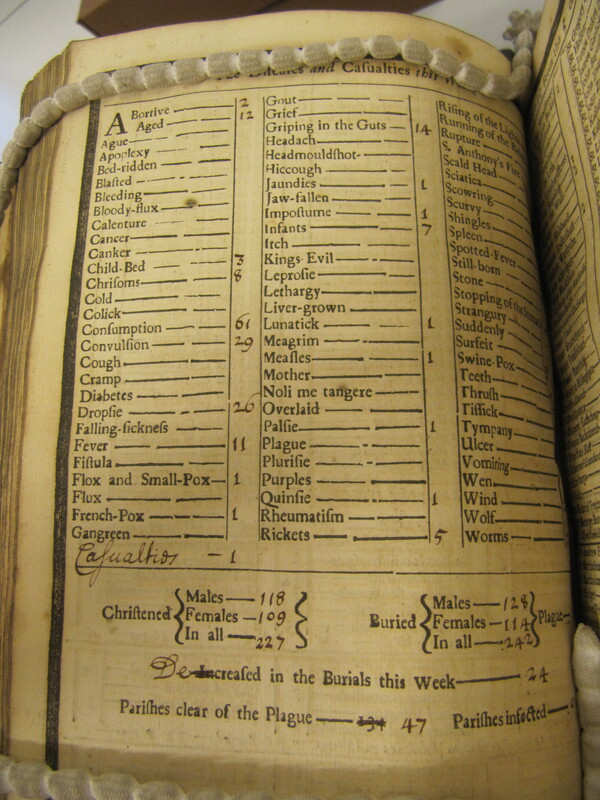 The Diseases and Casualties this
Abortive 2
Aged 12
Ague
Apoplexy
Bed-ridden
Blasted
Bleeding
Bloody-flux
Calenture
Cancer
Canker
Child-Bed 3
Chrisoms 8
Cold
Colick
Consumption 61
Convulsion 29
Cough
Cramp
Diabetes
Dropsie 26
Falling-sickness
Fever 11
Fistula
Flox and Small-Pox 1
Flux
French-Pox 1
Gangreen
Casualties 1
Gout
Grief
Griping in the Guts 14
Headach
Headmouldshot
Hiccough
Jaundies 1
Jaw-fallen
Impostume 1
Infants 7
Itch
Kings-Evil
Leprosie
Lethargy
Liver-grown
Lunatick 1
Meagrim
Measles 1
Mother
Noli me tangere
Overlaid
Palsie 1
Plague
Plurisie
Purples
Quinsie 1
Rheumatism
Rickets 5
Rising of the Lights
Running of the
Rupture
S. Anthony's Fire
Scald Head
Sciatica
Scowring
Scurvy
Shingles
Spleen
Spotted-Fever
Still-born
Stone
Stopping of the
Strangury
Suddenly
Surfeit
Swine-Pox
Teeth
Thrush
Tissick
Tympany
Ulcer
Vomiting
Wen
Wind
Wolf
Worms
Christened Males 118 Females 109 In all 227
Buried Males 128 Females 114 In all 242 Plague
Decreased in the Burials this Week 24
Parishes clear of the Plague 134 47 Parishes infected